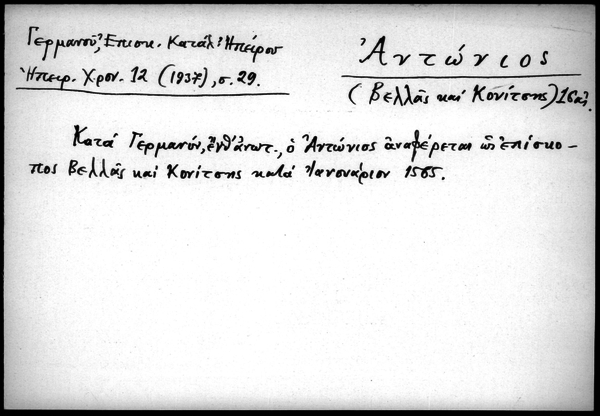 Γερμανοῦ, Ἐπισκ. Κατάλ. Ἠπείρου
Ἠπειρ. Χρον. 12 (1937), σ. 29.
Ἀντώνιος
(Βελλᾶς καὶ Κονίτσης) 16 αἰ.
Κατά Γερμανόν, ἔνθ' ἀνωτ., ὁ Ἀντώνιος ἀναφέρεται ὡς ἐπίσκο-
πος Βελλᾶς καὶ Κονίτσης κατά Ἰανουάριον 1565.